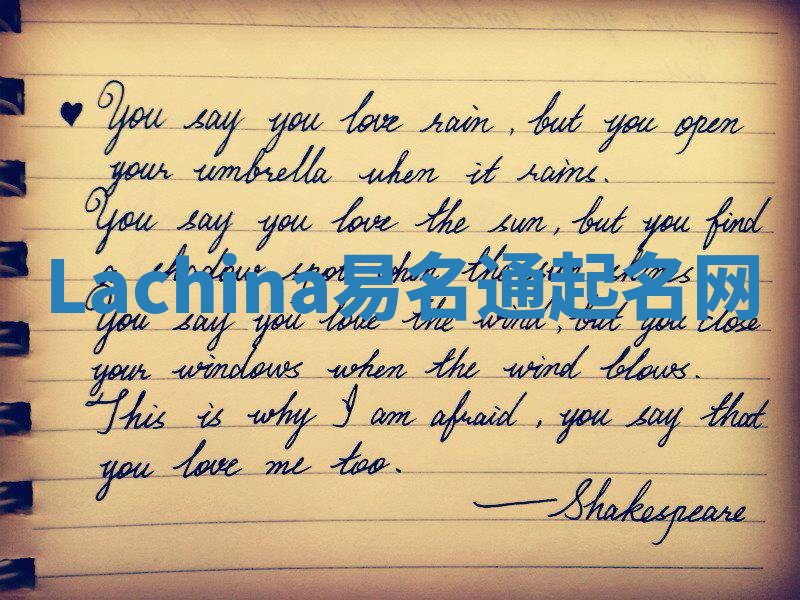 ♥ You say you love rain, but you open
your umbrella when it rains.
You say you love the sun, but you find
a shadow spot when the sun shines
Lachina易名通起名网
You say you love the wind, but you close
your windows when the wind blows.
This is why I am afraid, you say that
you love me too.
—Shakespeare